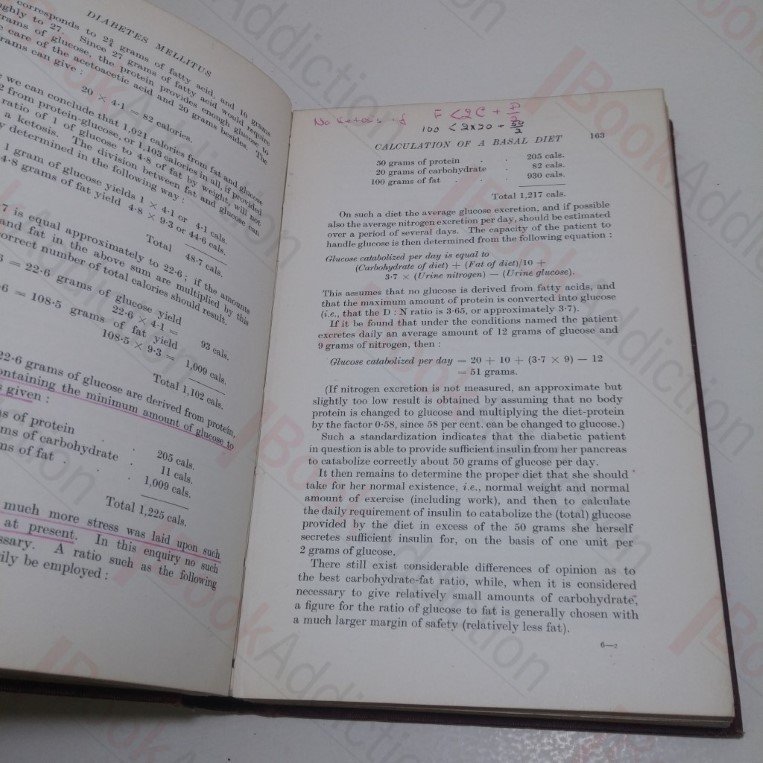 DIABETES MELLITUS
corresponds to 2¾ grams of fatty acid, and 10 grams
roughly to 27. Since 27 grams of fatty acid would require
grams of glucose, the protein provides enough glucose to
care of the acetoacetic acid and 20 grams besides. The
grams can give :
20 × 4·1 = 82 calories.
we can conclude that 1,021 calories from fat and glucose
2 from protein-glucose, or 1,103 calories in all, if provided
ratio of 1 of glucose to 4·8 of fat by weight, will not
a ketosis. The division between fat and glucose can
y determined in the following way :
1 gram of glucose yields 1 × 4·1 or 4·1 cals.
4·8 grams of fat yield 4·8 × 9·3 or 44·6 cals.
Total 48·7 cals.
7 is equal approximately to 22·6 ; if the amounts
and fat in the above sum are multiplied by this
correct number of total calories should result.
6 = 22·6 grams of glucose yield
22·6 × 4·1 = 92 cals.
·6 = 108·5 grams of fat yield
108·5 × 9·3 = 1,009 cals.
Total 1,102 cals.
22·6 grams of glucose are derived from protein,
containing the minimum amount of glucose to
s given :
s of protein . 205 cals.
ms of carbohydrate . 11 cals.
ms of fat . 1,009 cals.
Total 1,225 cals.
much more stress was laid upon such
at present. In this enquiry no such
ssary. A ratio such as the following
ily be employed :
No ketosis if F < 2C + P/2
100 < 2×20 + 50/2
CALCULATION OF A BASAL DIET 163
50 grams of protein . . 205 cals.
20 grams of carbohydrate . 82 cals.
100 grams of fat . . . 930 cals.
Total 1,217 cals.
On such a diet the average glucose excretion, and if possible
also the average nitrogen excretion per day, should be estimated
over a period of several days. The capacity of the patient to
handle glucose is then determined from the following equation :
Glucose catabolized per day is equal to
(Carbohydrate of diet) + (Fat of diet)/10 +
3·7 × (Urine nitrogen) — (Urine glucose).
This assumes that no glucose is derived from fatty acids, and
that the maximum amount of protein is converted into glucose
(i.e., that the D : N ratio is 3·65, or approximately 3·7).
If it be found that under the conditions named the patient
excretes daily an average amount of 12 grams of glucose and
9 grams of nitrogen, then :
Glucose catabolized per day = 20 + 10 + (3·7 × 9) — 12
= 51 grams.
(If nitrogen excretion is not measured, an approximate but
slightly too low result is obtained by assuming that no body
protein is changed to glucose and multiplying the diet-protein
by the factor 0·58, since 58 per cent. can be changed to glucose.)
Such a standardization indicates that the diabetic patient
in question is able to provide sufficient insulin from her pancreas
to catabolize correctly about 50 grams of glucose per day.
It then remains to determine the proper diet that she should
take for her normal existence, i.e., normal weight and normal
amount of exercise (including work), and then to calculate
the daily requirement of insulin to catabolize the (total) glucose
provided by the diet in excess of the 50 grams she herself
secretes sufficient insulin for, on the basis of one unit per
2 grams of glucose.
There still exist considerable differences of opinion as to
the best carbohydrate-fat ratio, while, when it is considered
necessary to give relatively small amounts of carbohydrate,
a figure for the ratio of glucose to fat is generally chosen with
a much larger margin of safety (relatively less fat).
6—2
BookAddiction